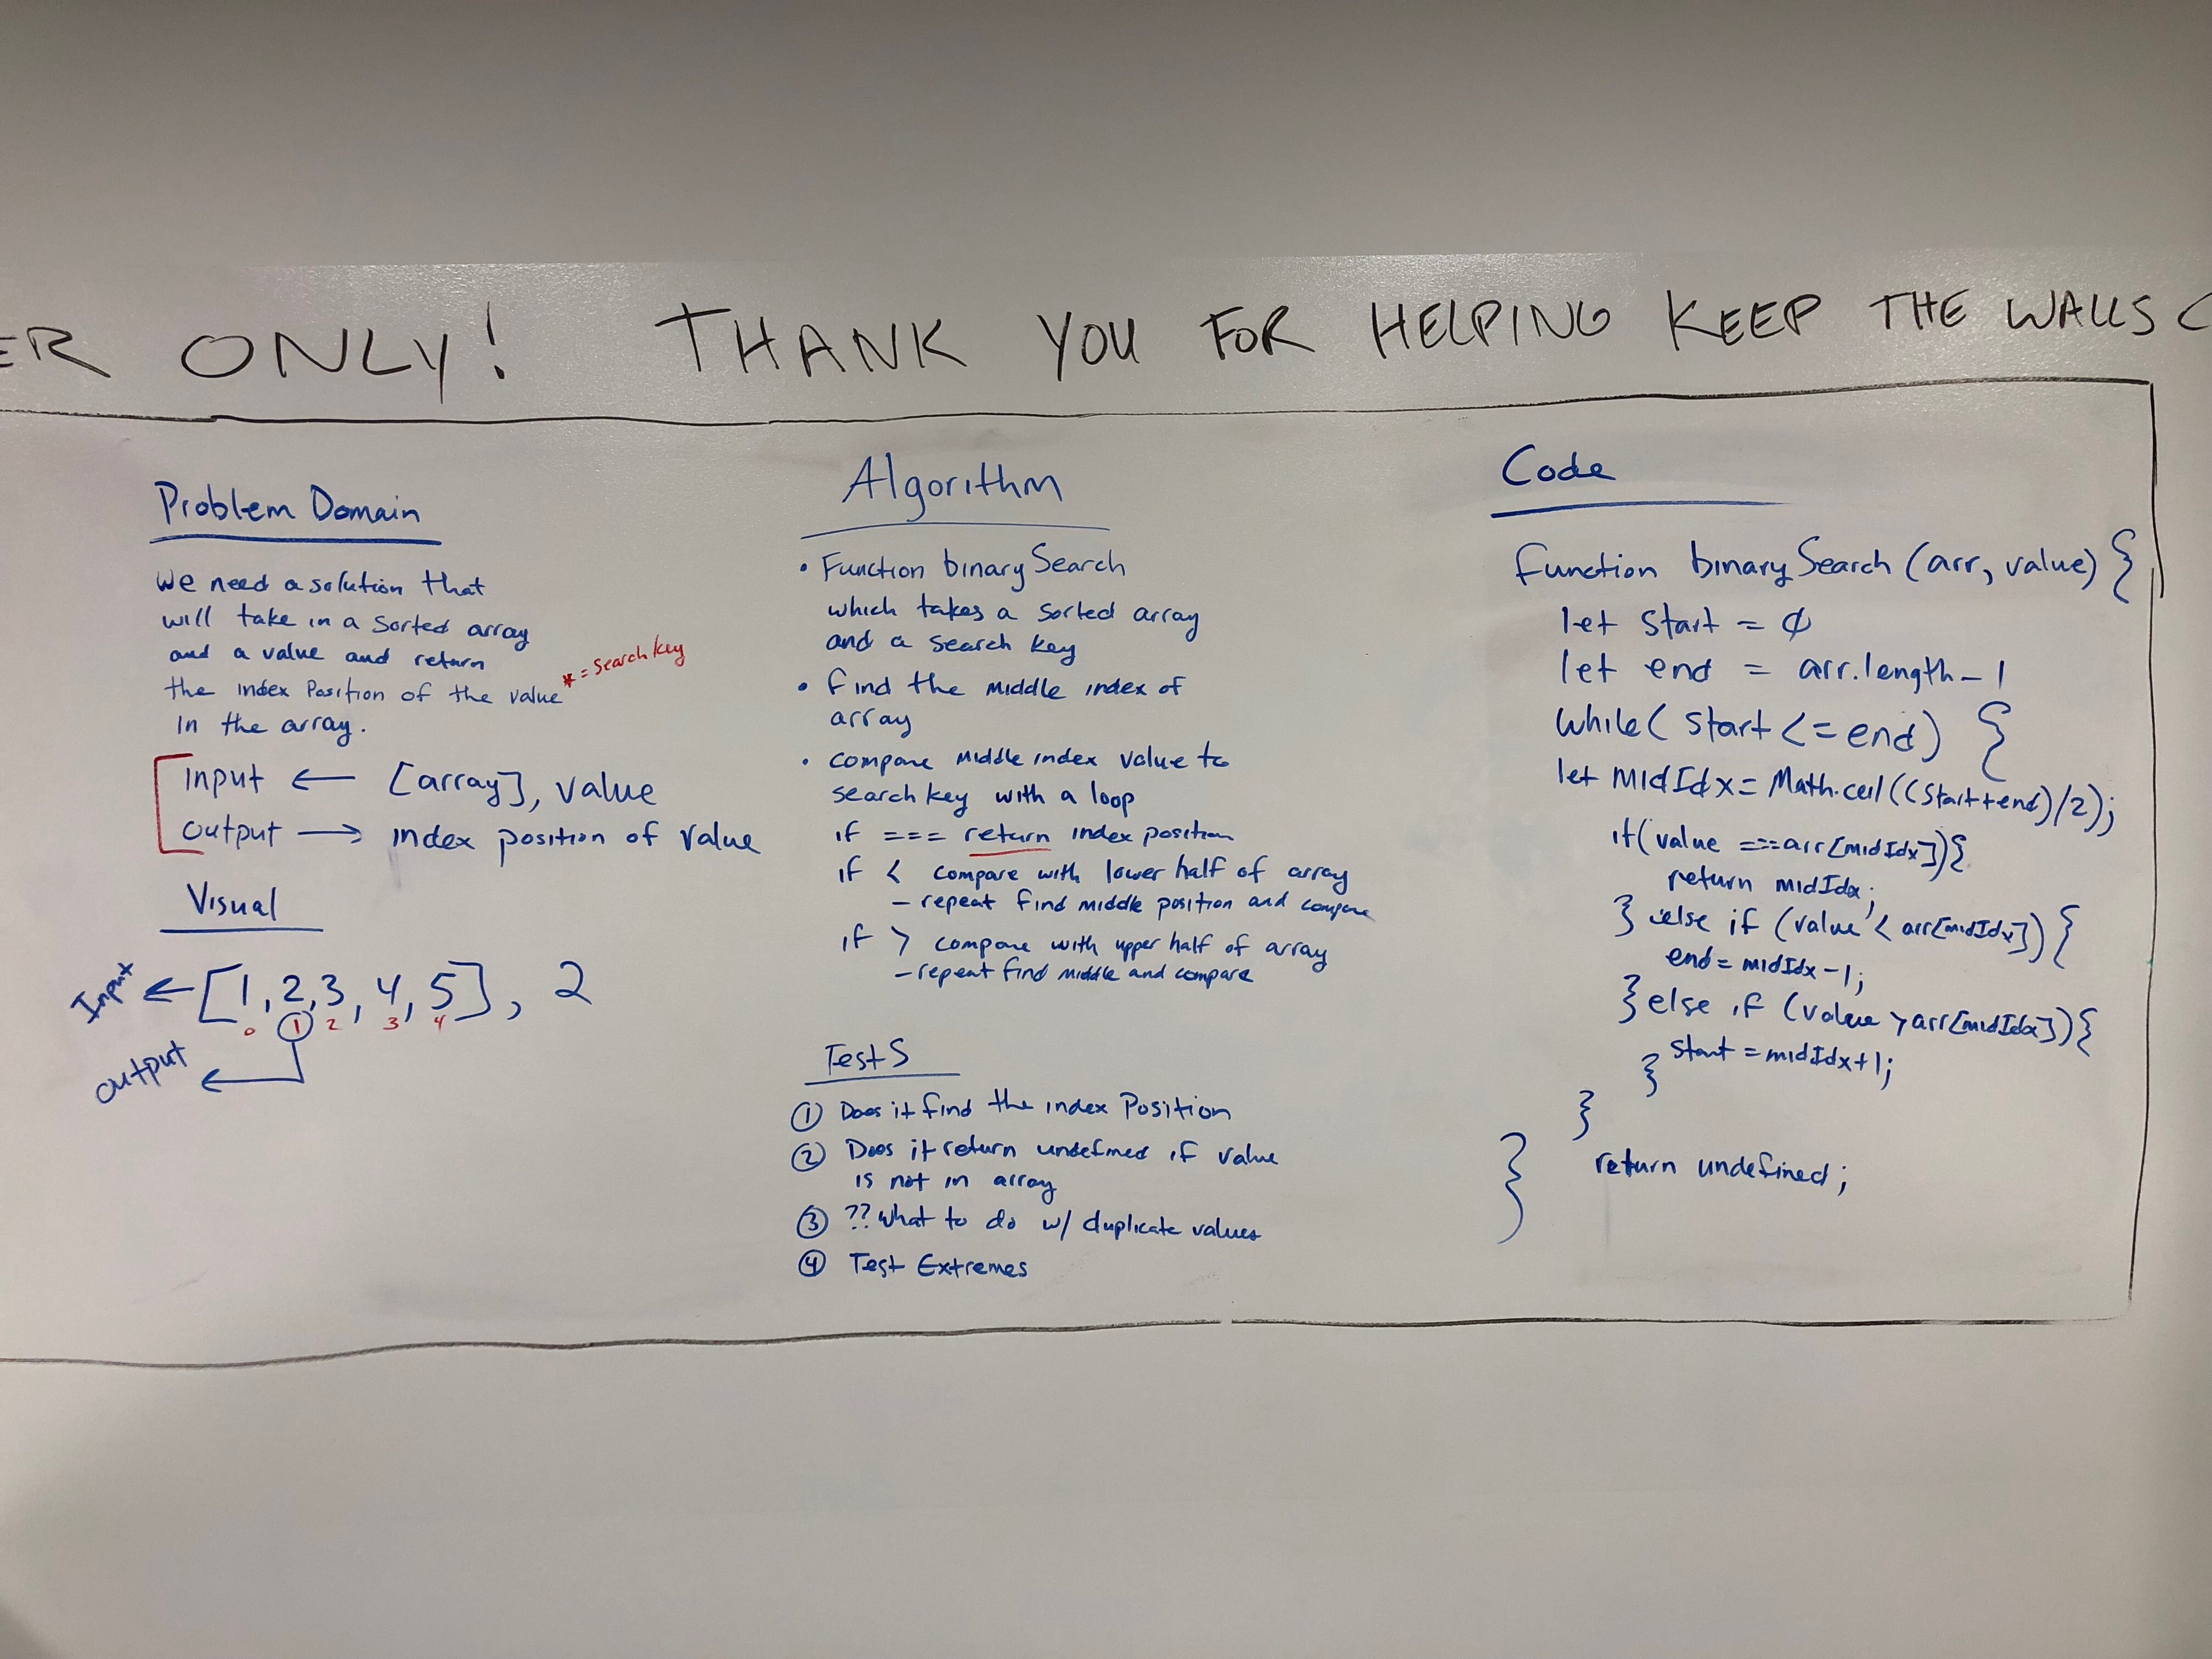 ER ONLY! THANK YOU FOR HELPING KEEP THE WALLS C
Problem Domain
We need a solution that
will take in a sorted array
and a value and return
the index Position of the value * = search key
in the array.
input ← [array], value
output → index position of value
Visual
Input ← [1, 2, 3, 4, 5], 2
0 1 2 3 4
output ←
Algorithm
• Function binarySearch
which takes a sorted array
and a search key
• find the middle index of
array
• compare middle index value to
search key with a loop
if === return index position
if < compare with lower half of array
- repeat find middle position and compare
if > compare with upper half of array
- repeat find middle and compare
Tests
① Does it find the index Position
② Does it return undefined if value
is not in array
③ ?? What to do w/ duplicate values
④ Test Extremes
Code
function binarySearch (arr, value) {
let start = 0
let end = arr.length - 1
while( start <= end) {
let midIdx = Math.ceil((start+end)/2);
if( value === arr[midIdx]){
return midIdx;
} else if (value < arr[midIdx]) {
end = midIdx -1;
} else if (value > arr[midIdx]){
start = midIdx+1;
}
}
return undefined;
}